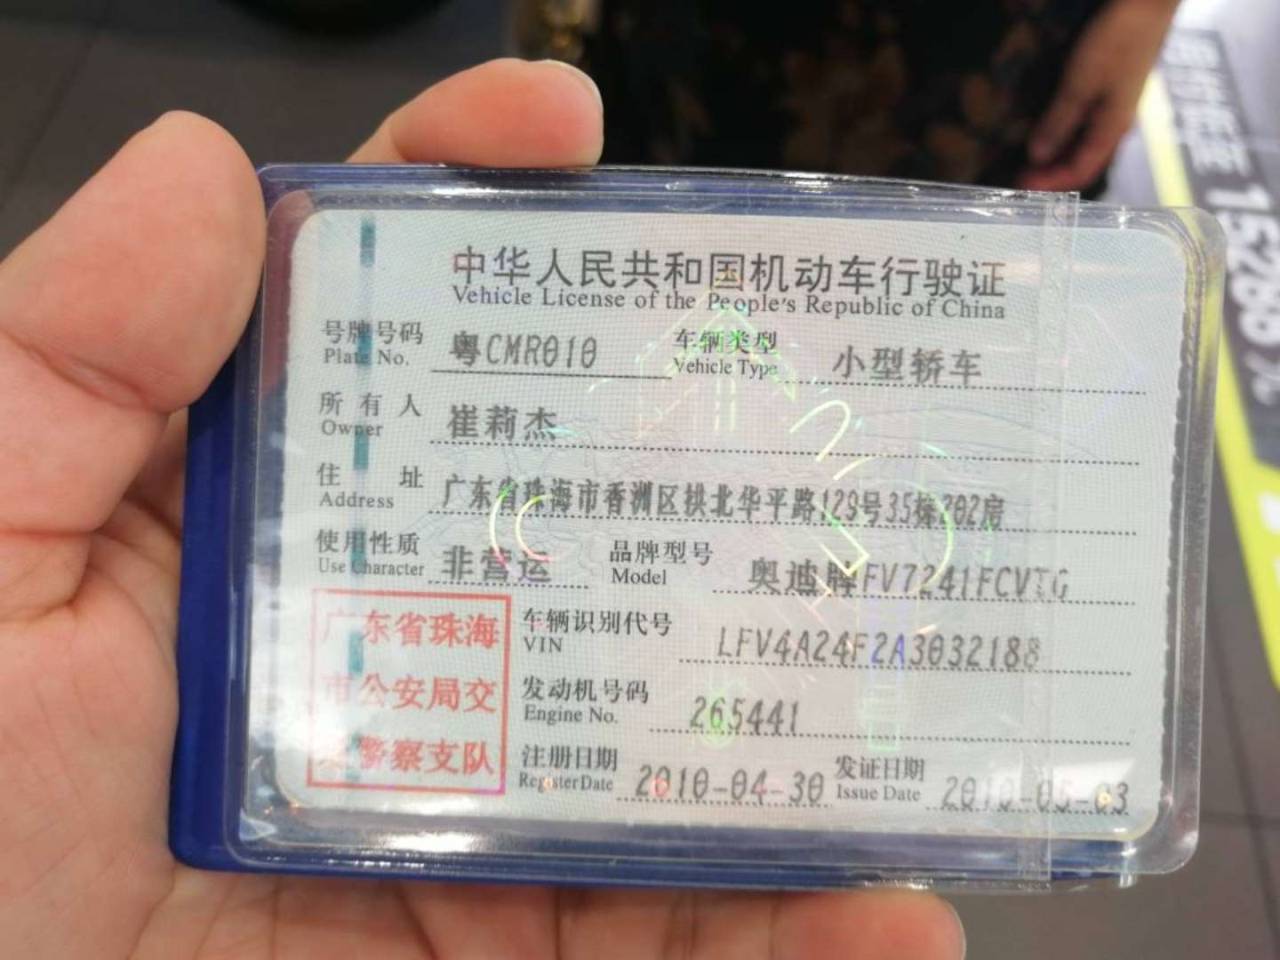 中华人民共和国机动车行驶证
Vehicle License of the People's Republic of China
号牌号码 粤CMR010 车辆类型 小型轿车
Plate No. Vehicle Type
所有人 崔莉杰
Owner
住址 广东省珠海市香洲区拱北华平路129号35栋202房
Address
使用性质 非营运 品牌型号 奥迪牌FV7241FCVTG
Use Character Model
广东省珠海
市公安局交
警察支队
车辆识别代号 LFV4A24F2A3032188
VIN
发动机号码 265441
Engine No.
注册日期 2010-04-30 发证日期 2010-05-03
Register Date Issue Date
15288元